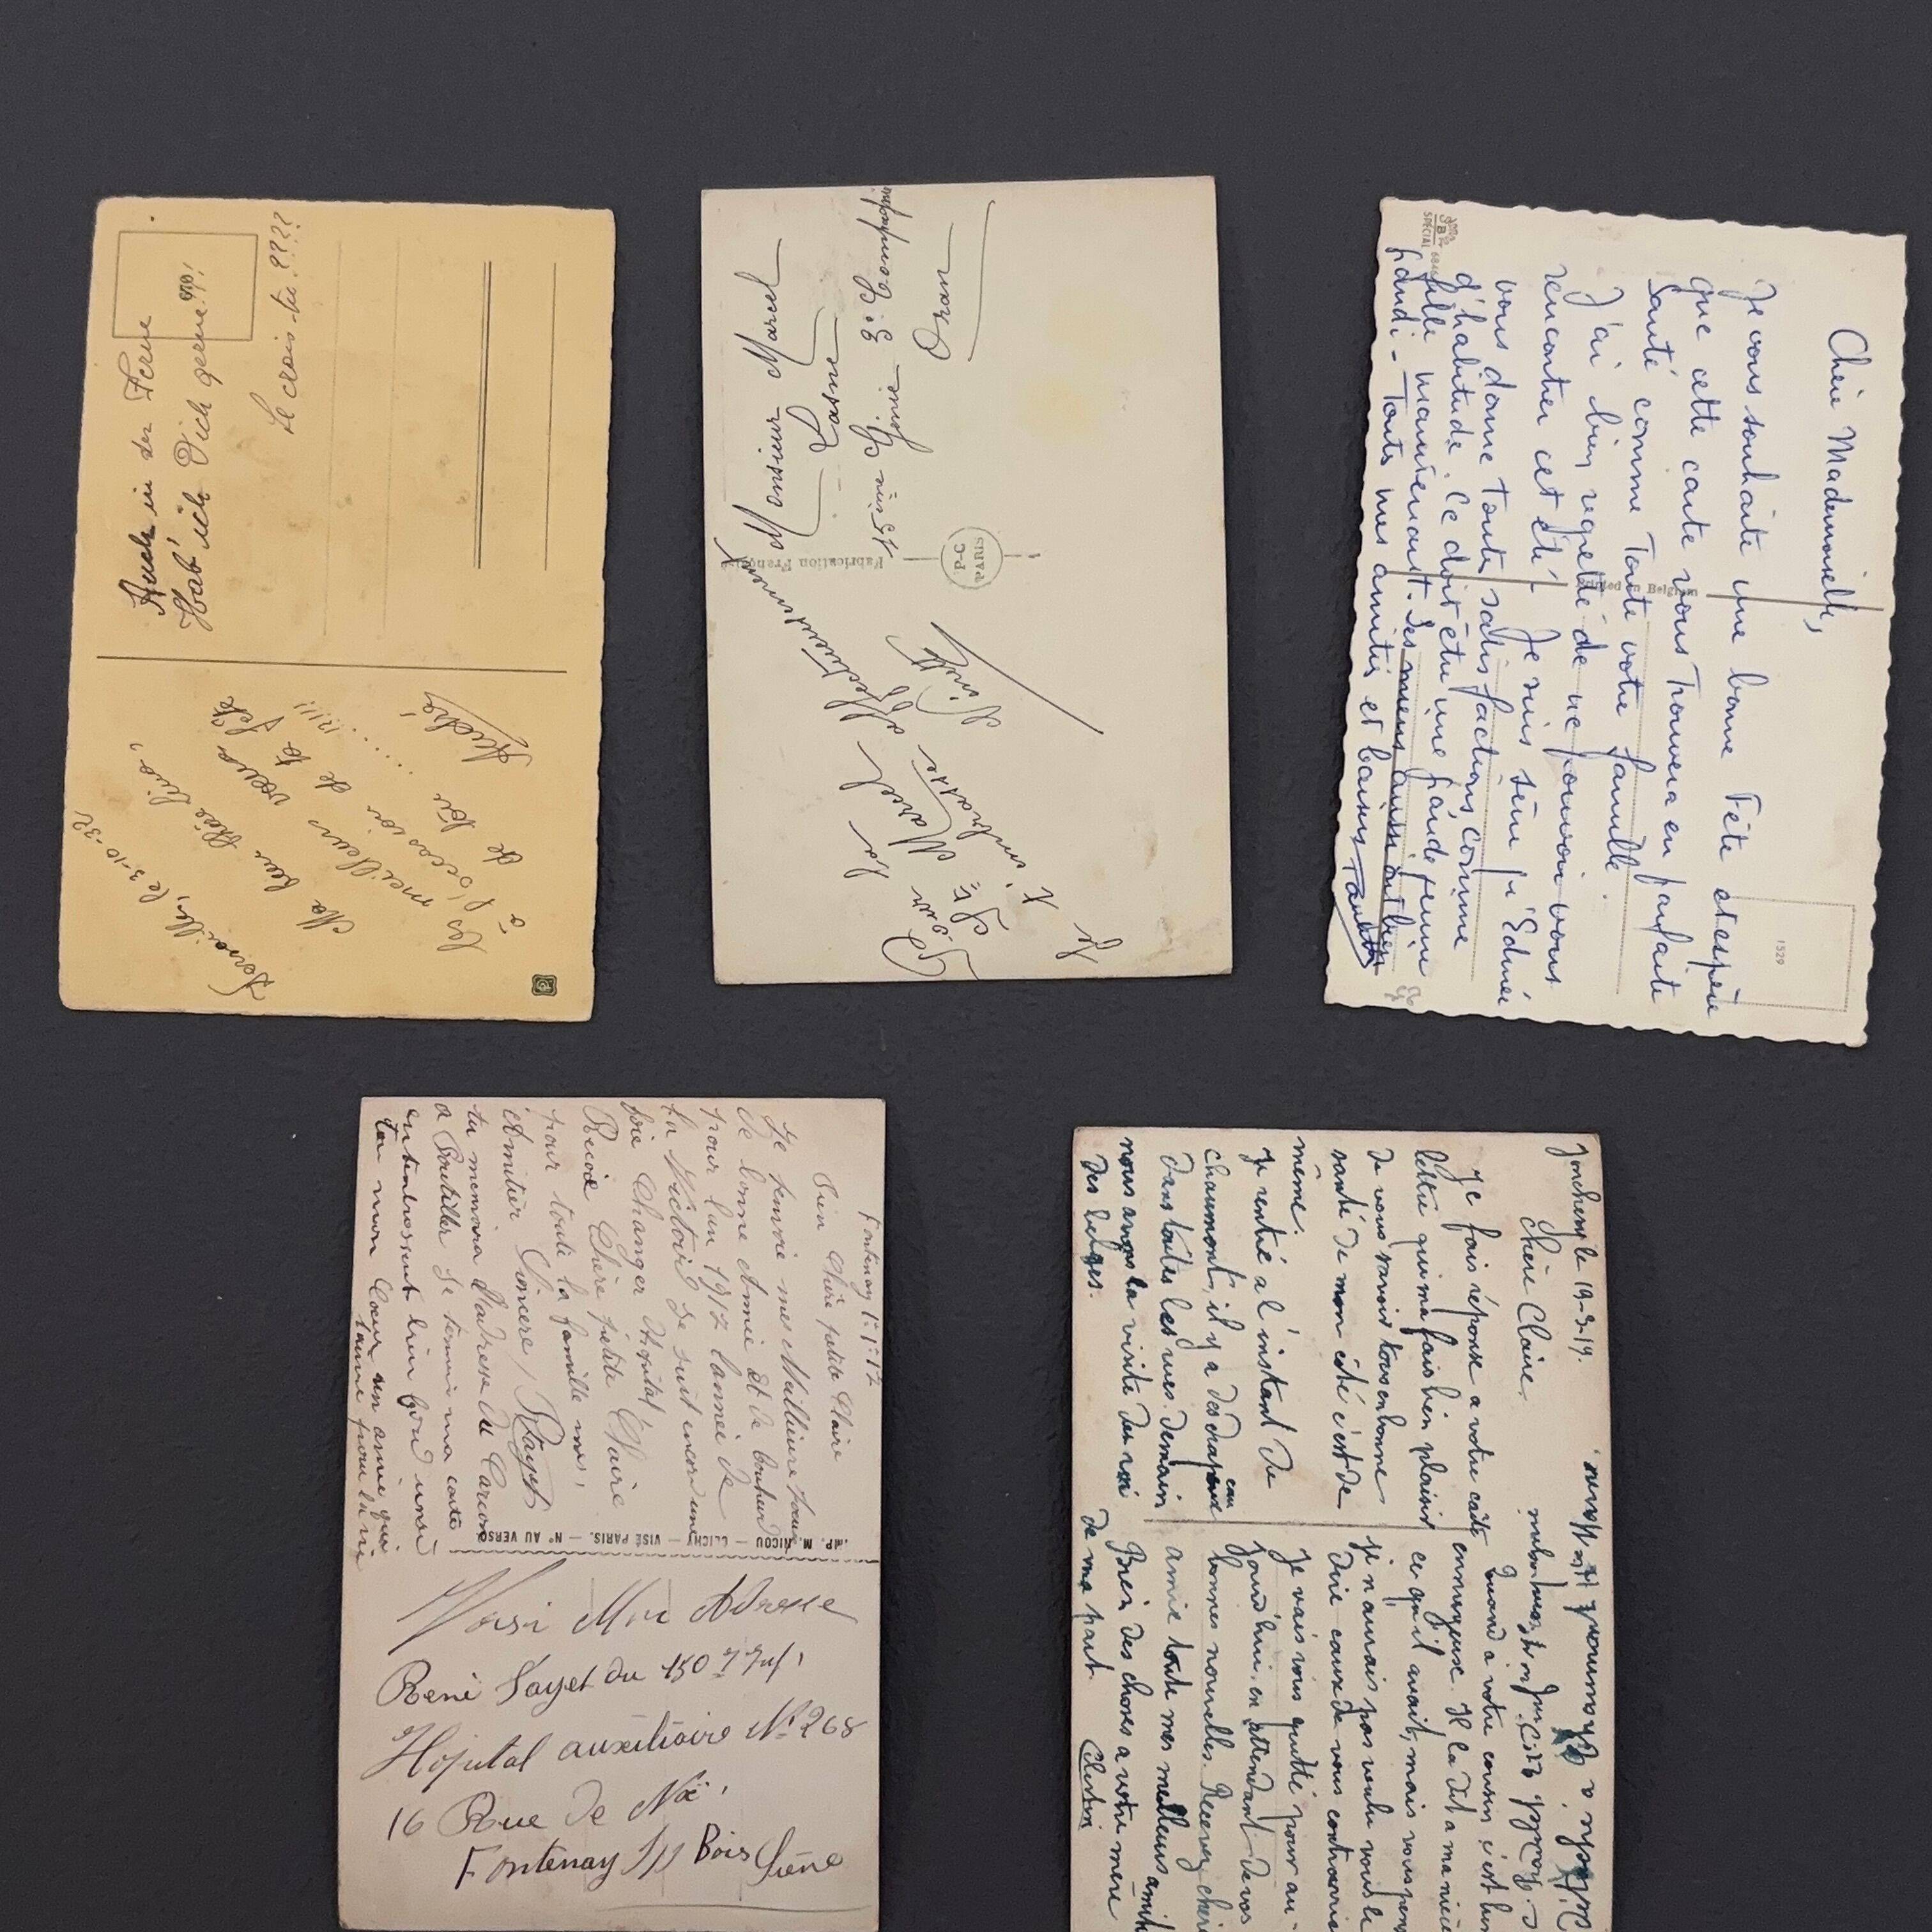 Auch in der Ferne
Hab' ich Dich gerne!
Le crois-tu ????
le 3-10-32
Ma bien chère
Les meilleurs vœux
à l'occasion de ta fête
de ton ........ !?!!!
André
Monsieur Marcel
15ème Génie 3e Compagnie
Oran
Fabrication Française
P-C
PARIS
Pour ta
St Marcel
Je t'embrasse affectueusement
Ninette
SPECIAL
Chère Mademoiselle,
Je vous souhaite une bonne Fête et espère
que cette carte vous trouvera en parfaite
santé comme toute votre famille.
J'ai bien regretté de ne pouvoir vous
rencontrer cet été. Je suis sûre qu'Edmée
vous donne toute satisfactions comme
d'habitude. Ce doit être une grande jeune
fille maintenant. Les miens aussi ont bien
grandi - Toutes mes amitiés et baisers
Printed in Belgium
1529
Fontenay 1-1-17
Bien Chère petite Claire
Je t'envoie mes Meilleure vœux
de bonne Amie et de bonheur
pour l'an 1917 l'année de
la Victoire Je suit encore une
fois Changer Hopital
Recoi Chère petite Claire
pour toute la famille mes
Amitier Sincere, Payet
tu menvera l'adresse du Garcon
a Je termine ma carte
en tembrassent bien
ton mon Cœur un amie qui
taime pour la vie
IMP. M. NICOU — CLICHY — VISÉ PARIS. — N° AU VERSO
Voisi Mon Adresse
René Payet du 150 e Inf,
Hopital auxiliaire N° 268
16 Rue de
Fontenay S/s Bois Seine
Jonchery le 19-3-19.
Chère Claire.
Je fais réponse a votre carte
lettre qui ma fais bien plaisir
de vous savoir tous en bonne
santé de mon côté c'est de
même.
Je rentre a l'instant de
Chaumont, il y a des drapeaux
dans toutes les rues. Demain
nous avons la visite du roi
des belges.
Quand a votre cousin c'est bien
ennuyeux. Il la dit a ma nièce
ce qu'il avait, mais vous pensez
je n'aurais pas voulu vous le
dire cause de vous contrarier
Je vais vous quitté pour au-
jourd'hui, en attendant de vos
bonnes nouvelles. Recevez chère
amie toute mes meilleurs amitiés
Bien des choses a votre mère
de ma part.